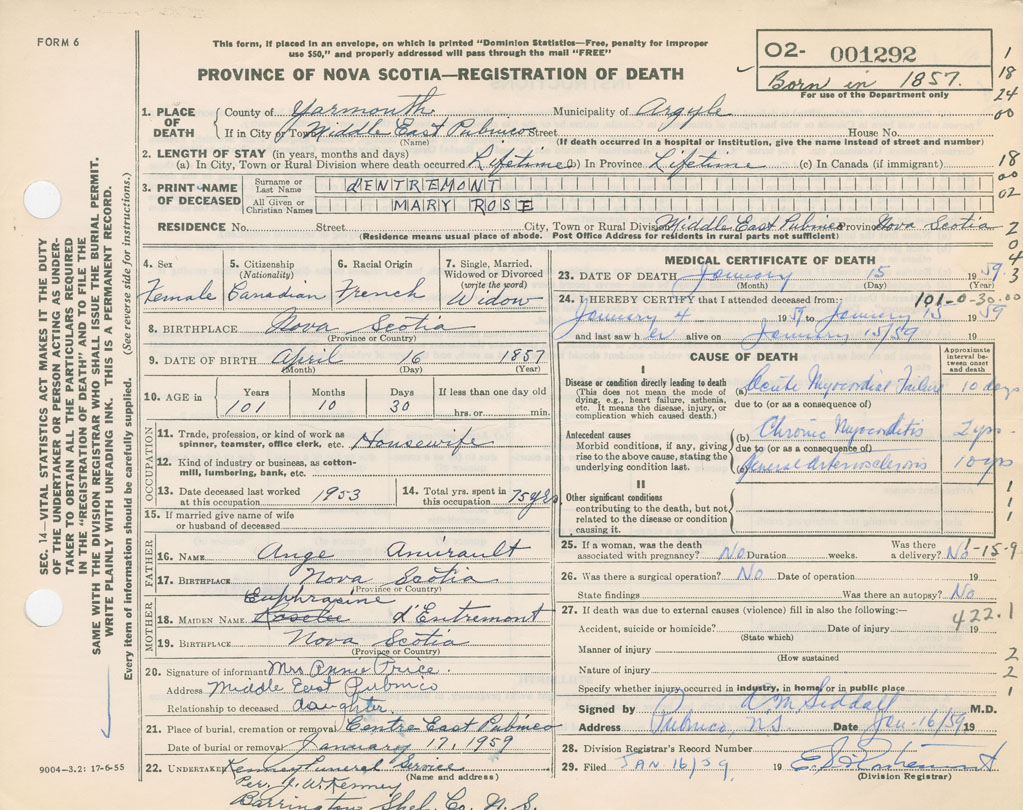 FORM 6
This form, if placed in an envelope, on which is printed "Dominion Statistics—Free, penalty for improper
use $50," and properly addressed will pass through the mail "FREE"
PROVINCE OF NOVA SCOTIA—REGISTRATION OF DEATH
O2- 001292
Born in 1857.
For use of the Department only
1
18
24
00
18
00
02
2
0
4
3
SEC. 14—VITAL STATISTICS ACT MAKES IT THE DUTY
OF THE UNDERTAKER OR PERSON ACTING AS UNDER-
TAKER TO OBTAIN ALL THE PARTICULARS REQUIRED
IN THE "REGISTRATION OF DEATH" AND TO FILE THE
SAME WITH THE DIVISION REGISTRAR WHO SHALL ISSUE THE BURIAL PERMIT.
WRITE PLAINLY WITH UNFADING INK. THIS IS A PERMANENT RECORD.
Every item of information should be carefully supplied. (See reverse side for instructions.)
1. PLACE OF DEATH County of Yarmouth Municipality of Argyle
If in City or Town Middle East Pubnico Street House No.
(Name) (If death occurred in a hospital or institution, give the name instead of street and number)
2. LENGTH OF STAY (in years, months and days)
(a) In City, Town or Rural Division where death occurred Lifetime (b) In Province Lifetime (c) In Canada (if immigrant)
3. PRINT NAME OF DECEASED Surname or Last Name d'ENTREMONT
All Given or Christian Names MARY ROSE
RESIDENCE No. Street City, Town or Rural Division Middle East Pubnico Province Nova Scotia
(Residence means usual place of abode. Post Office Address for residents in rural parts not sufficient)
4. Sex 5. Citizenship (Nationality) 6. Racial Origin 7. Single, Married, Widowed or Divorced (write the word)
Female Canadian French Widow
8. BIRTHPLACE Nova Scotia
(Province or Country)
9. DATE OF BIRTH April 16 1857
(Month) (Day) (Year)
10. AGE in Years Months Days If less than one day old
101 10 30 hrs. or min.
OCCUPATION
11. Trade, profession, or kind of work as spinner, teamster, office clerk, etc. Housewife
12. Kind of industry or business, as cotton-mill, lumbering, bank, etc.
13. Date deceased last worked at this occupation 1953 14. Total yrs. spent in this occupation 75 yrs
15. If married give name of wife or husband of deceased
FATHER
16. NAME Ange Amirault
17. BIRTHPLACE Nova Scotia
(Province or Country)
MOTHER
Euphrasine
18. MAIDEN NAME d'Entremont
19. BIRTHPLACE Nova Scotia
(Province or Country)
20. Signature of informant Mrs Annie Price.
Address Middle East Pubnico
Relationship to deceased daughter.
21. Place of burial, cremation or removal Centre East Pubnico
Date of burial or removal January 17, 1959
22. UNDERTAKER Kenney Funeral Service
(Name and address)
Per. J. W. Kenney
Barrington Shel. Co. N. S.
9004—3.2: 17-6-55
MEDICAL CERTIFICATE OF DEATH
23. DATE OF DEATH January 15 1959.
(Month) (Day) (Year)
24. I HEREBY CERTIFY that I attended deceased from: 101-0-30.00
January 4 1959 to January 15 1959
and last saw her alive on January 15/59
CAUSE OF DEATH
Approximate interval between onset and death
I
Disease or condition directly leading to death
(This does not mean the mode of dying, e.g., heart failure, asthenia, etc. It means the disease, injury, or complication which caused death.)
(a) Acute Myocardial Failure 10 days
due to (or as a consequence of)
Antecedent causes
Morbid conditions, if any, giving rise to the above cause, stating the underlying condition last.
(b) Chronic Myocarditis 2 yrs-
due to (or as a consequence of)
(c) General Arteriosclerosis 10 yrs
II
Other significant conditions
contributing to the death, but not related to the disease or condition causing it.
1
1
1
25. If a woman, was the death associated with pregnancy? No Duration weeks. Was there a delivery? No
1-15-9
26. Was there a surgical operation? No Date of operation 19
State findings Was there an autopsy? No
27. If death was due to external causes (violence) fill in also the following:— 422.1
Accident, suicide or homicide? Date of injury 19
(State which)
Manner of injury 2
(How sustained
Nature of injury 2
Specify whether injury occurred in industry, in home, or in public place 1
Signed by A M Siddall M.D.
Address Pubnico, N.S. Date Jan-16/59 19
28. Division Registrar's Record Number
29. Filed JAN. 16/59. 19
(Division Registrar)